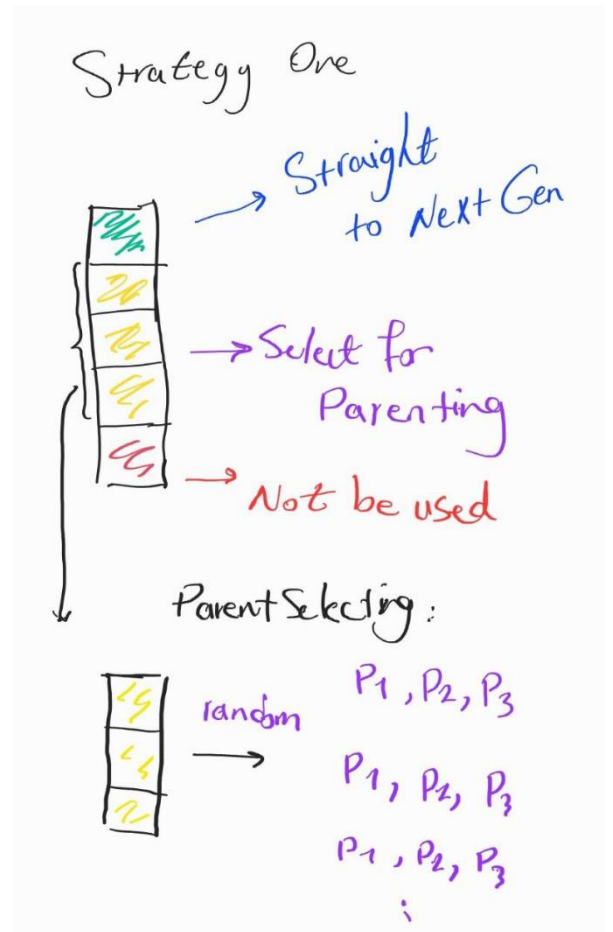 Strategy One
Straight
to Next Gen
Select for
Parenting
Not be used
Parent Selecting:
random
P1, P2, P3
P1, P2, P3
P1, P2, P3
⋮